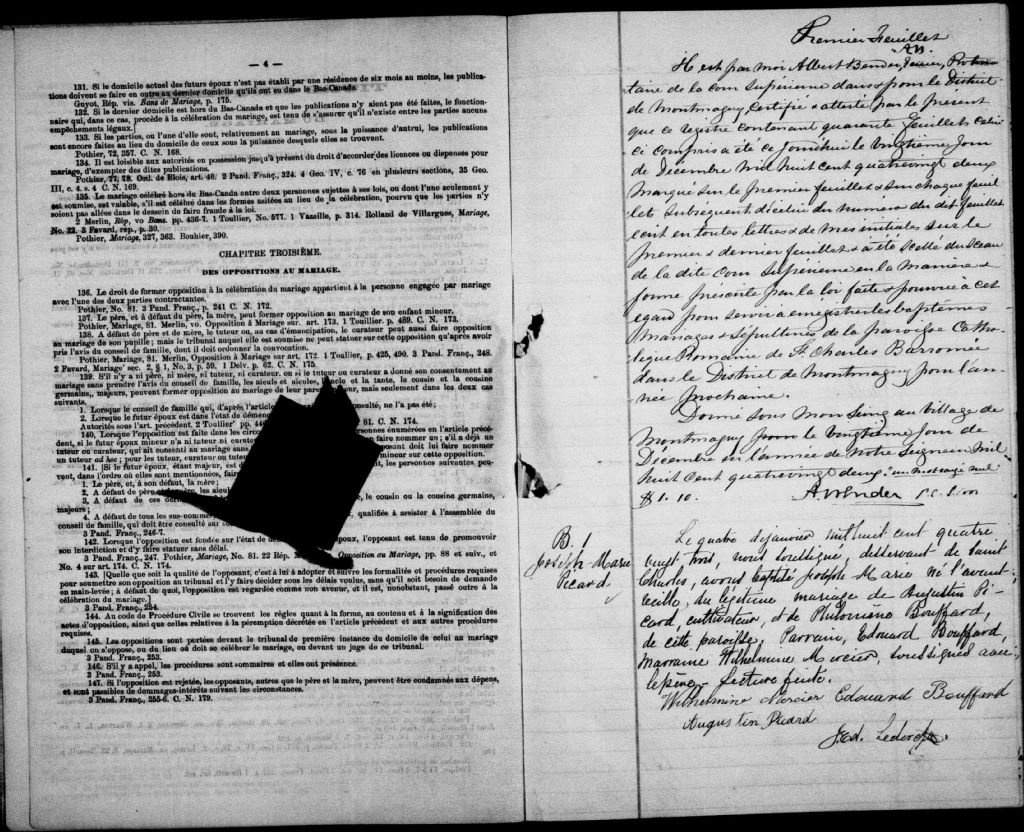 — 4 —
131. Si le domicile actuel des futurs époux n'est pas établi par une résidence de six mois au moins, les publica-
tions doivent se faire en outre au dernier domicile qu'ils ont eu dans le Bas-Canada.
Guyot, Rép. vis. Bans de Mariage, p. 175.
132. Si le dernier domicile est hors du Bas-Canada et que les publications n'y aient pas été faites, le fonction-
naire qui, dans ce cas, procède à la célébration du mariage, est tenu de s'assurer qu'il n'existe entre les parties aucuns
empêchements légaux.]
133. Si les parties, ou l'une d'elles sont, relativement au mariage, sous la puissance d'autrui, les publications
sont encore faites au lieu du domicile de ceux sous la puissance desquels elles se trouvent.
Pothier, 72, 357. C. N. 168.
134. Il est loisible aux autorités en possession jusqu'à présent du droit d'accorder des licences ou dispenses pour
mariage, d'exempter des dites publications.
Pothier, 77, 78. Ord. de Blois, art. 40. 2 Pand. Franç., 324. 4 Geo. IV, c. 76 en plusieurs sections, 35 Geo.
III, c. 4. s. 4 C. N. 169.
135. Le mariage célébré hors du Bas-Canada entre deux personnes sujettes à ses lois, ou dont l'une seulement y
est soumise, est valable, s'il est célébré dans les formes usitées au lieu de la célébration, pourvu que les parties n'y
soient pas allées dans le dessein de faire fraude à la loi.
2 Merlin, Rép, vo Bans. pp. 436-7. 1 Toullier, No. 577. 1 Vazeille, p. 314. Rolland de Villargues, Mariage,
No. 22. 3 Favard, rep., p. 30.
Pothier, Mariage, 327, 363. Bouhier, 390.
CHAPITRE TROISIÈME.
DES OPPOSITIONS AU MARIAGE.
136. Le droit de former opposition à la célébration du mariage appartient à la personne engagée par mariage
avec l'une des deux parties contractantes.
Pothier, No. 81. 3 Pand. Franç., p. 241 C. N. 172.
137. Le père, et à défaut du père, la mère, peut former opposition au mariage de son enfant mineur.
Pothier, Mariage, 81. Merlin, vo. Opposition à Mariage sur. art. 173, 1 Toullier. p. 489. C. N. 173.
138. A défaut de père et de mère, le tuteur ou, au cas d'émancipation, le curateur peut aussi faire opposition
au mariage de son pupille; mais le tribunal auquel elle est soumise ne peut statuer sur cette opposition qu'après avoir
pris l'avis du conseil de famille, dont il doit ordonner la convocation.
Pothier, Mariage, 81. Merlin, Opposition à Mariage sur art. 172. 1 Toullier, p. 425, 490. 3 Pand. Franç., 248.
2 Favard, Mariage, sec. 2, § 1, No. 3, p. 59. 1 Delv. p. 62. C. N. 175.
139. S'il n'y a ni père, ni mère, ni tuteur, ni curateur, ou si le tuteur ou curateur a donné son consentement au
mariage sans prendre l'avis du conseil de famille, les aïeuls et aïeules, l'oncle et la tante, le cousin et la cousine
germains, majeurs, peuvent former opposition au mariage de leur parent mineur, mais seulement dans les deux cas
suivants.
1. Lorsque le conseil de famille qui, d'après l'article consulté, ne l'a pas été;
2. Lorsque le futur époux est dans l'état de démence
Autorités sous l'art. précédent. 2 Toullier pp. 81. C. N. 174.
140. Lorsque l'opposition est faite dans les circonstances personnes énumérées en l'article précé-
dent, si le futur époux mineur n'a ni tuteur ni curateur faire nommer un; s'il a déjà un
tuteur ou curateur, qui ait consenti au mariage sans opposant doit lui faire nommer
un tuteur ad hoc; pour les tuteur, curateur ou tuteur mineur sur cette opposition.
141. [Si le futur époux, étant majeur, est les personnes suivantes peu-
vent, dans l'ordre où elles sont mentionnées, faire
1. Le père, et, à son défaut, la mère;
2. A défaut de père et de mère, les aïeuls
3. A défaut de ces derniers le cousin ou la cousine germains,
majeurs;
4. A défaut de tous les sus-nommés qualifiés à assister à l'assemblée du
conseil de famille, qui doit être consulté sur
3 Pand. Franç., 246-7.
142. Lorsque l'opposition est fondée sur l'état de époux, l'opposant est tenu de promouvoir
son interdiction et d'y faire statuer sans délai.
3 Pand. Franç., 247. Pothier, Mariage, No. 81. 22 Rép. Opposition au Mariage, pp. 88 et suiv., et
No. 4 sur art. 174. C. N. 174.
143. [Quelque soit la qualité de l'opposant, c'est à lui à adopter et suivre les formalités et procédures requises
pour soumettre son opposition au tribunal et l'y faire décider sous les délais voulus, sans qu'il soit besoin de demande
en main-levée; à défaut de quoi, l'opposition est regardée comme non avenue, et il est, nonobstant, passé outre à la
célébration du mariage.]
3 Pand. Franç., 254.
144. Au code de Procédure Civile se trouvent les règles quant à la forme, au contenu et à la signification des
notes d'opposition, ainsi que celles relatives à la péremption décrétée en l'article précédent et aux autres procédures
requises.
145. Les oppositions sont portées devant le tribunal de première instance du domicile de celui au mariage
duquel on s'oppose, ou du lieu où doit se célébrer le mariage, ou devant un juge de ce tribunal.
3 Pand. Franç., 253.
146. S'il y a appel, les procédures sont sommaires et elles ont présence.
3 Pand. Franç., 253.
147. Si l'opposition est rejetée, les opposants, autres que le père et la mère, peuvent être condamnés aux dépens,
et sont passibles de dommages-intérêts suivant les circonstances.
3 Pand. Franç., 255-6. C. N. 179.
Premier feuillet
A.B.
Il est par moi Albert Bender, Protono
taire de la cour Supérieure dans & pour le District
de Montmagny certifié & attesté par le présent
que ce régistre contenant quarante feuillets celui
ci compris a été ce jourd'hui le vingtième jour
de Décembre mil huit cent quatrevingt deux
Marqué sur le premier feuillet & sur chaque feuil
let subséquent du numéro du dit feuillet
écrit en toutes lettres & de mes initiales sur le
premier & dernier feuillet & a été scellé du sceau
de la dite cour Supérieure en la manière &
forme prescrite par la loi faite & pourvue à cet
égard pour servir à enregistrer les baptêmes
Mariages & Sépultures de la paroisse Catho
lique Romaine de St. Charles Barromée
dans le District de Montmagny pour l'an
née prochaine.
Donné sous mon seing au village de
Montmagny pour le vingtième jour de
Décembre en l'année de Notre Seigneur Mil
huit cent quatrevingt deux.
$1.10. A. Bender P.C.S.
B. 1
Joseph Marie
Picard
Le quatre de janvier mil huit cent quatre
vingt trois, nous soussigné, desservant de Saint
Charles, avons baptisé Joseph Marie né l'avant-
veille, du légitime mariage de Augustin Pi-
card, cultivateur, et de Philomène Bouffard,
de cette paroisse. Parrain, Edouard Bouffard,
marraine Wilhelmine Mercier, soussignés avec
le père. Lecture faite.
Wilhelmine Mercier Edouard Bouffard
Augustin Picard
J. Ed. Leclerc